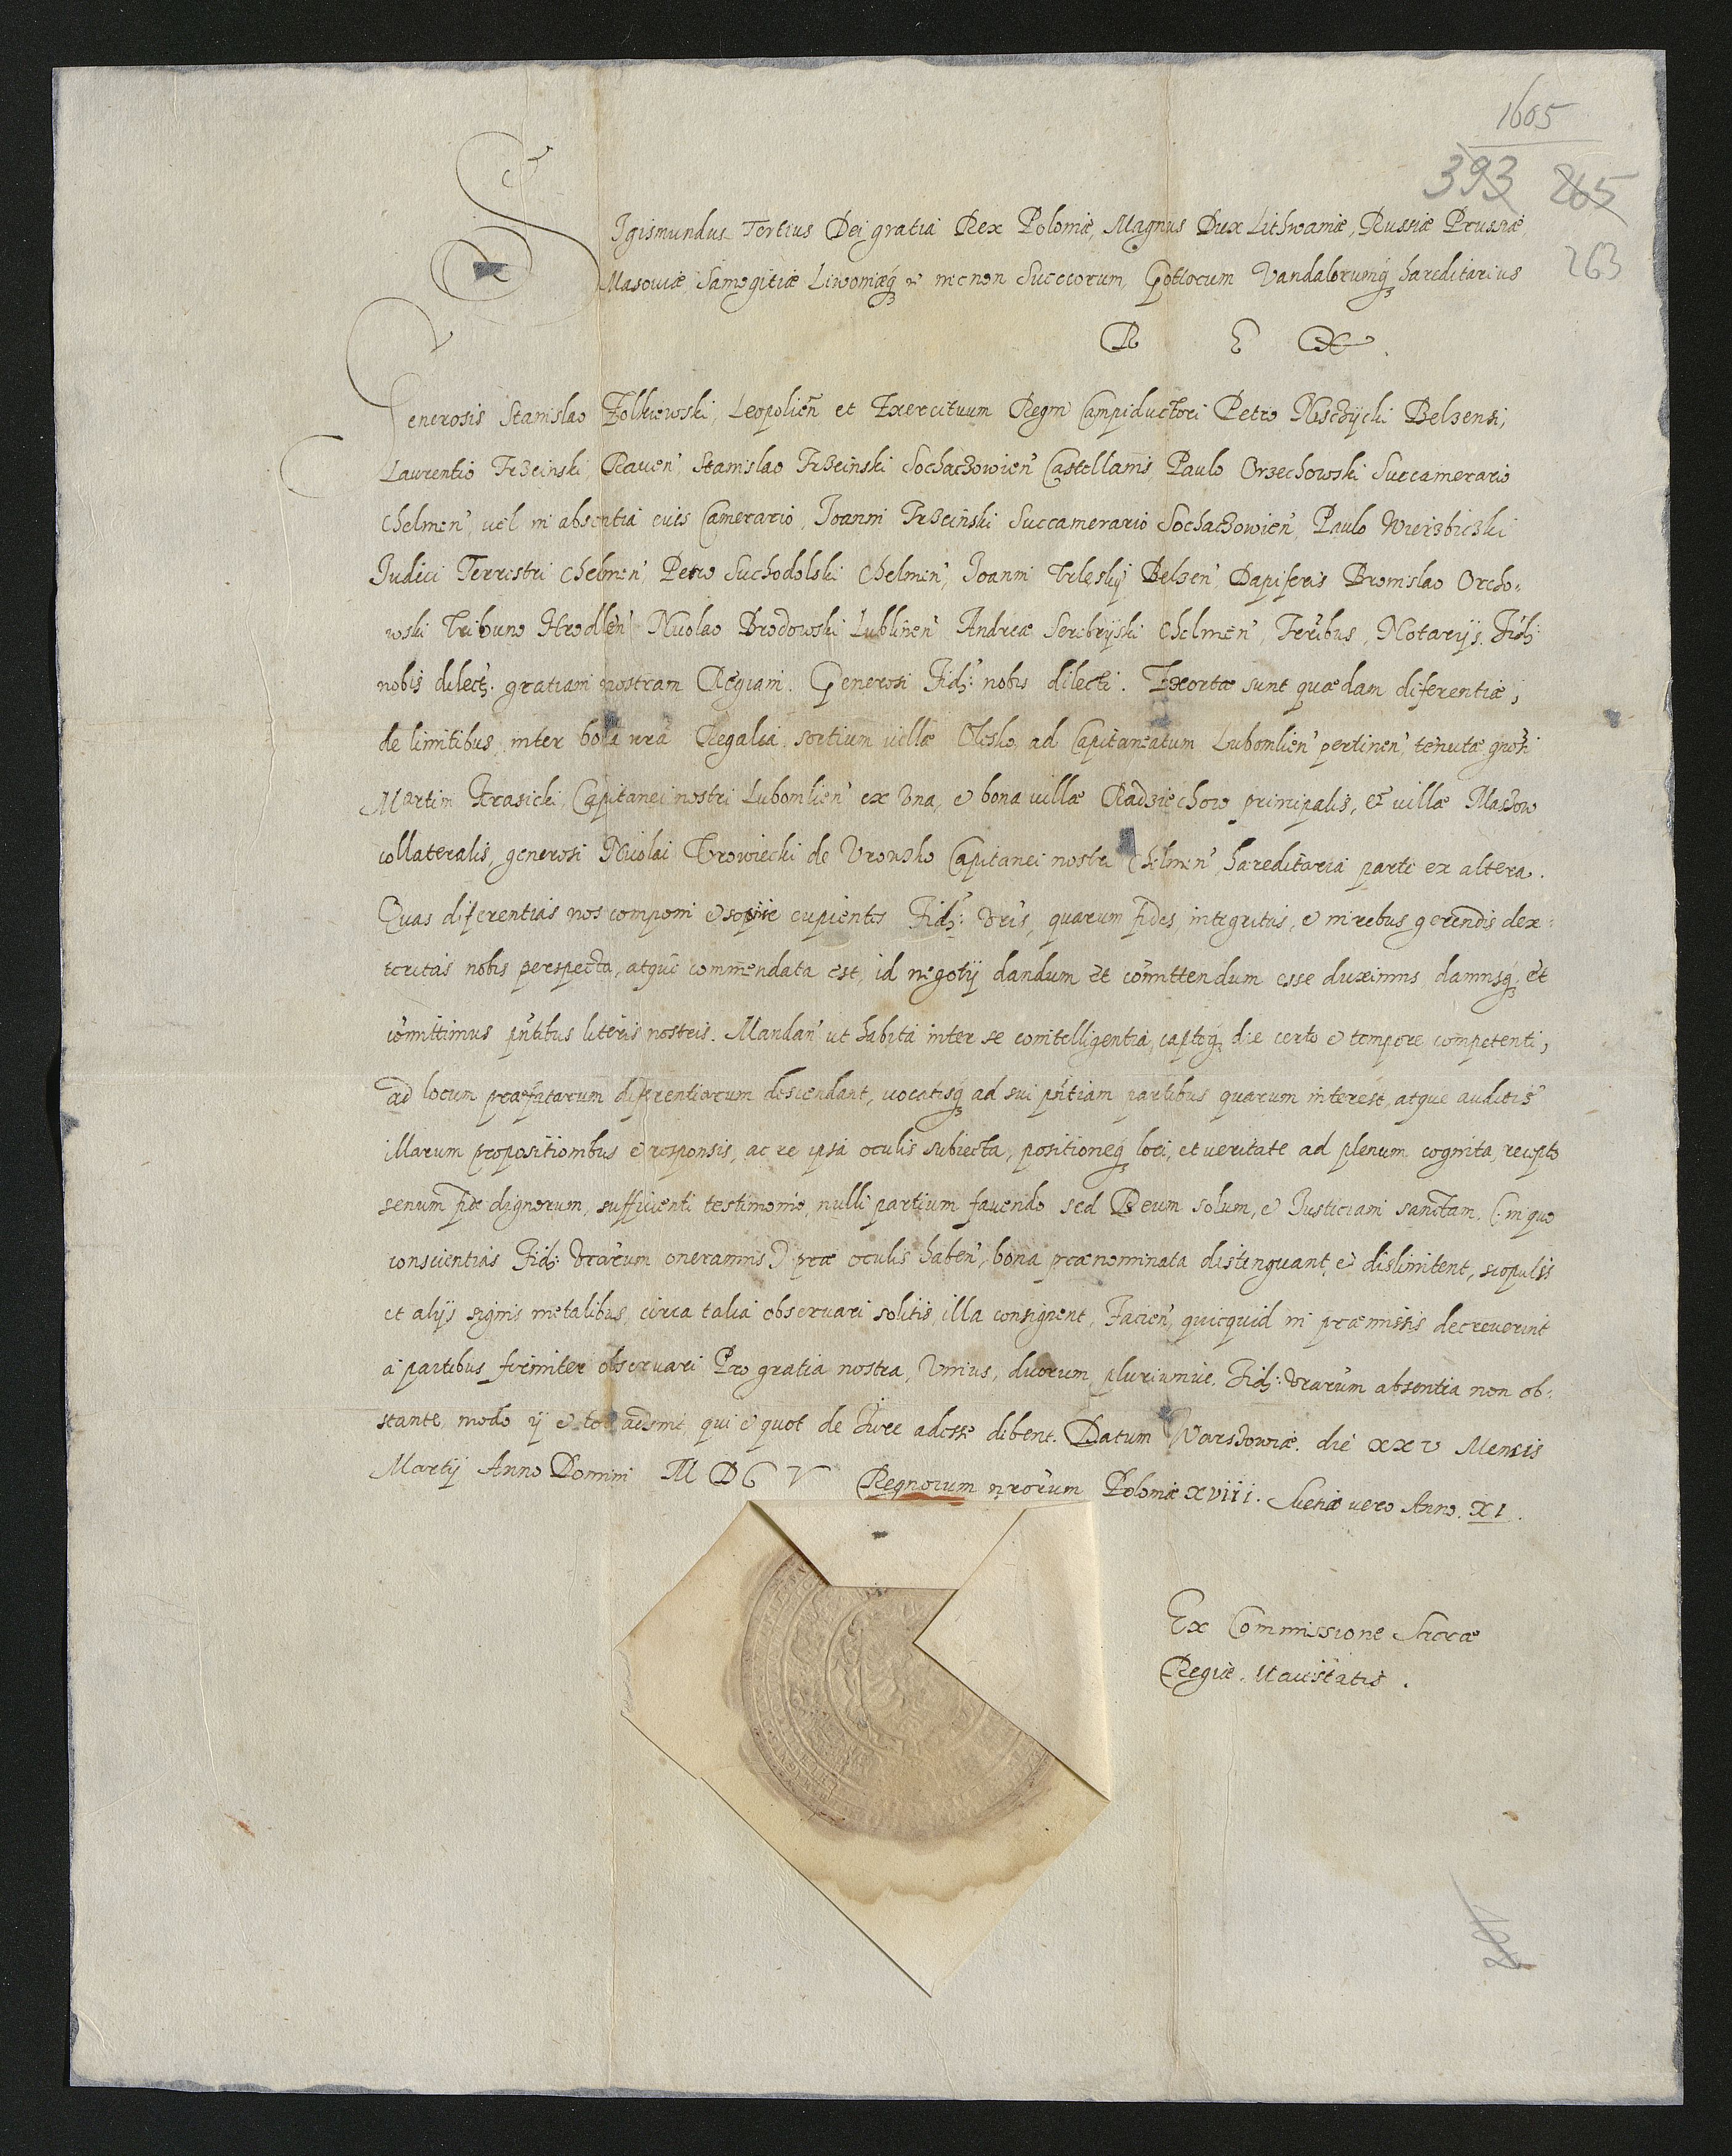 1605
393 265
263
Sigismundus Tertius Dei gratia Rex Poloniæ, Magnus Dux Lithwaniæ, Russiæ Prussiæ,
Masouiæ Samogitiæ Liwoniæq3 &c necnon Succorum, Gottorum Vandalorumq3 hæreditarius
R E X.
Generosis Stanislao Zolkiewski, Leopolien̄ et Exercituum Regni Campiductori Petro Nisczijcki Belzensi,
Laurentio Trzcinski, Rauen̄, Stanislao Trzcinski Sochaczowien̄ Castellanis, Paulo Orzechowski Succamerario
Chelmen̄, uel in absentia euis Camerario, Joanni Trzcinski Succamerario Sochaczowien̄, Paulo Wierzbiczki
Judici Terrestri Chelmen̄, Petro Suchodolski Chelmen̄, Joanni Belzen̄ Dapiferis Bronislao Orcho-
wski Tribuno Hrodlen̄ Nicolao Brodowski Lublinen̄ Andreæ Serebryski Chelmen̄, Terr̄ibus, Notarijs. Fid:
nobis dilect: gratiam nostram Regiam. Generosi Fid: nobis dilecti. Exortæ sunt quædam diferentiæ,
de limitibus, inter bona nr̄a Regalia, sortium villæ Olesko, ad Capitaneatum Lubomlien̄ pertinen̄, tenutæ gn̄osi
Martini Krasicki, Capitanei nostri Lubomlien̄ ex una, & bona villæ Radziechow principalis, et villæ Maszow
collateralis, generosi Nicolai Urowiecki de Urowsko Capitanei nostri Chelmen̄, hæreditaria parte ex altera.
Quas diferentias nos componi & sopire cupientes Fid: Vr̄is, quarum fides, integritas, & in rebus gerendis dex-
teritas nobis perspecta, atque com̄endata est, id negotij dandum et com̄ittendum esse duximus damusq3 et
com̄ittimus pn̄tibus literis nostris. Mandan̄ ut habita inter se cointelligentia, captoq3 die certo & tempore competenti,
ad locum præfatarum diferentiarum descendant, uocatisq3 ad sui pn̄tiam partibus quarum interest, atque auditis
illarum propositionibus & responsis, ac re ipsa oculis subiecta, positioneq3 loci, et ueritate ad plenum cognita, recepto
senum fide dignorum, sufficienti testimonio, nulli partium fauendo sed Deum solum, & Justiciam sanctam. (: in quo
conscientias Fid: Vr̄arum oneramus :) præ oculis haben̄, bona prænominata distinguant, & dislimitent, scopulis
et alijs signis metalibus, circa talia obseruari solitis, illa consignent, Facien̄, quicquid in præmissis decreuerint
a partibus firmiter obseruari Pro gratia nostra, Unius, duorum pluriumue, Fid: Vr̄arum absentia non ob-
stante, modo ij & tot adsint, qui & quot de Jure adesse debent. Datum Warszowiæ. die XXV Mensis
Martij Anno Domini M D C V Regnorum nr̄orum Poloniæ XVIII. Sueciæ vero Anno. XI.
Ex Commissione Sacræ
Regiæ. Maiestatis.